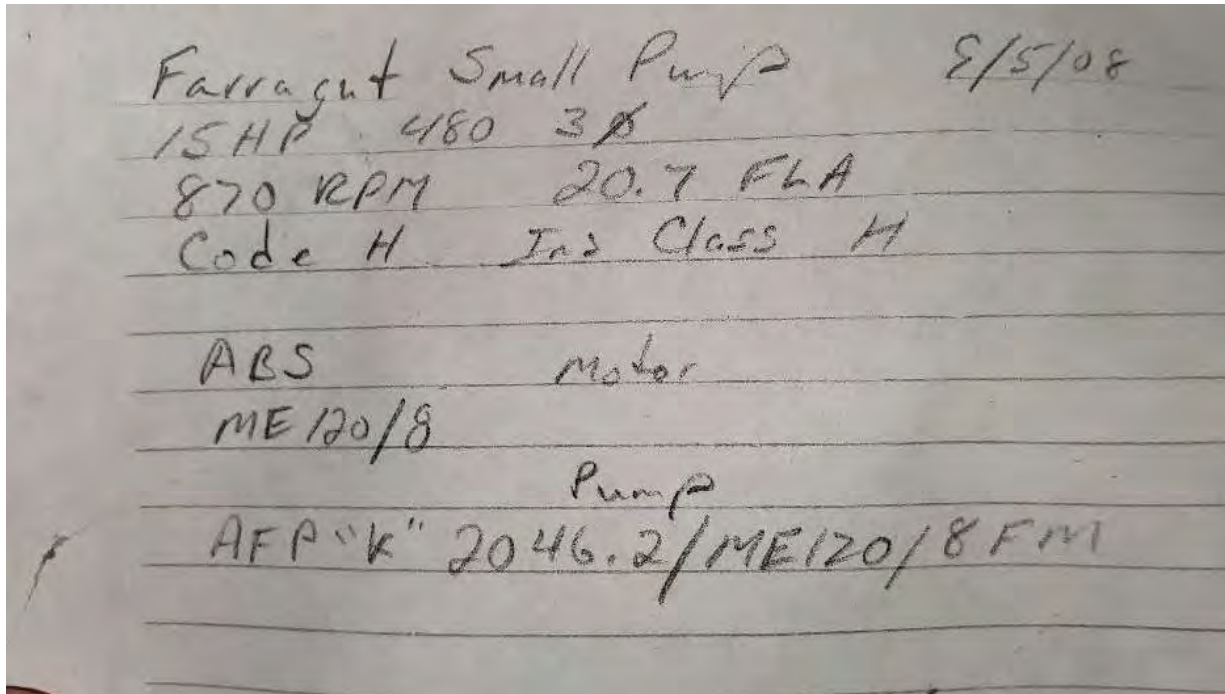 Farragut Small Pump 8/5/08
15HP 480 3Ø
870 RPM 20.7 FLA
Code H Ins Class H
ABS Motor
ME 120/8
Pump
AFP "K" 2046.2/ME120/8FM